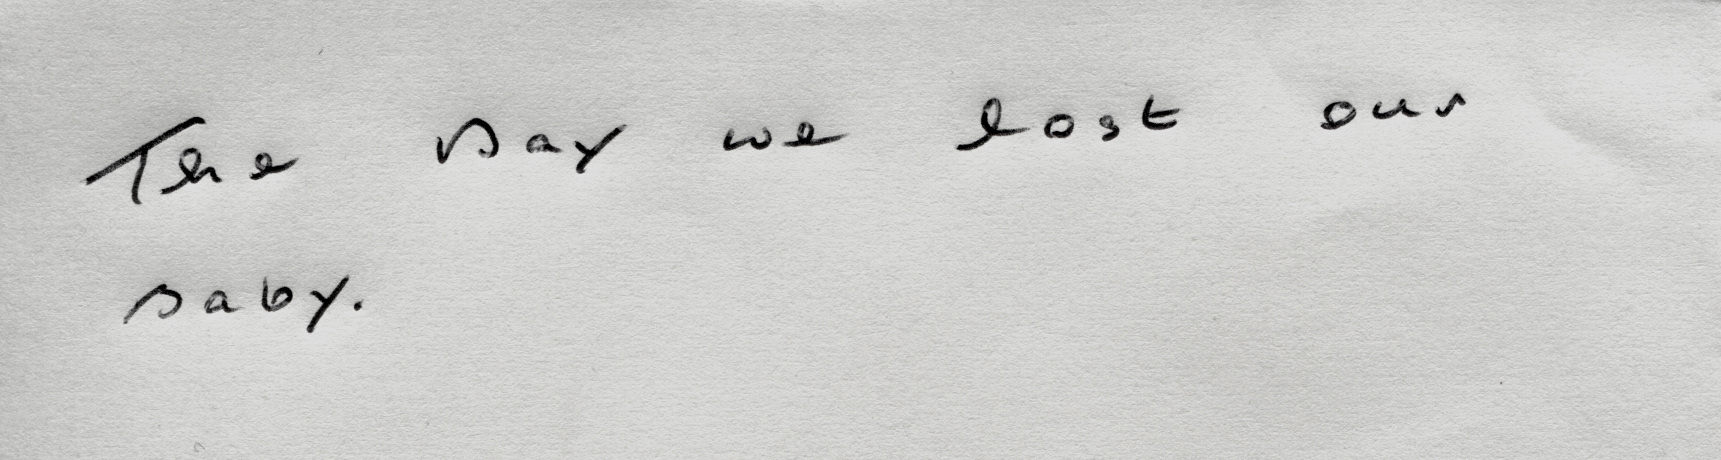 The Day we lost our
Baby.